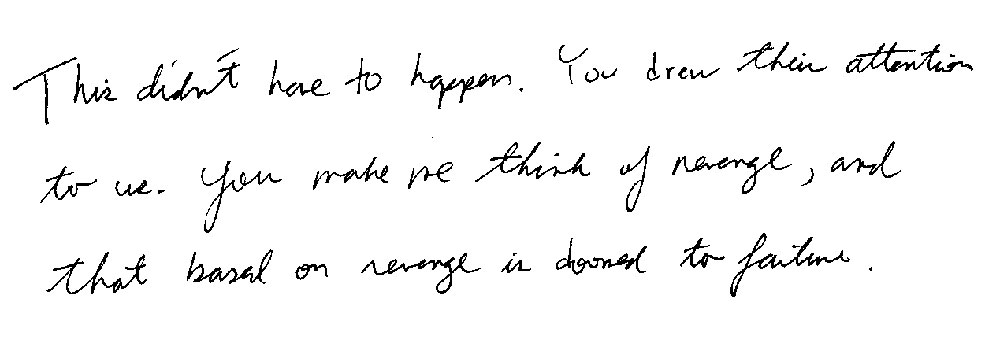 This didn't have to happen. You drew their attention
to us. You make me think of revenge, and
that based on revenge is doomed to failure.